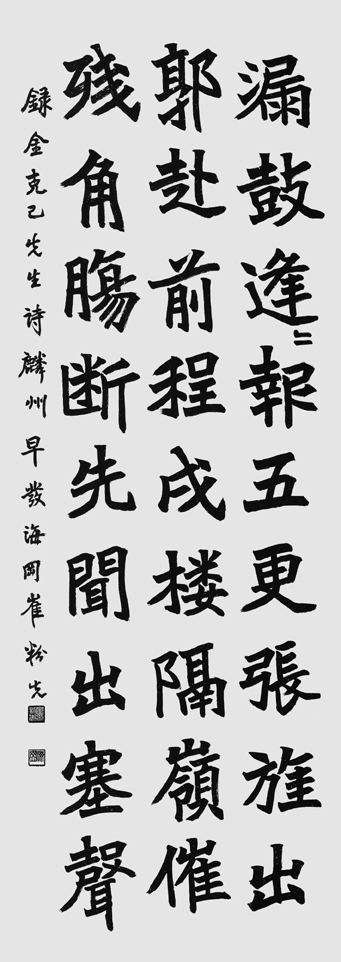 漏鼓逢〻報五更張旌出
郭赴前程戍楼隔嶺催
残角膓断先聞出塞聲
録金克己先生詩麟州早發海岡崔粉先